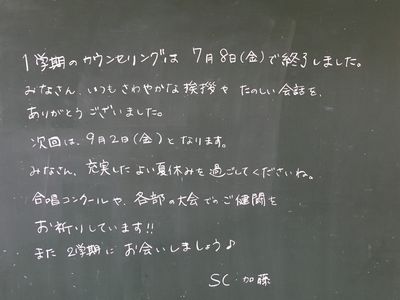 1学期のカウンセリングは 7月8日(金)で終了しました。
みなさん、いつもさわやかな挨拶や たのしい会話を、
ありがとうございました。
次回は、9月2日(金)となります。
みなさん、充実したよい夏休みを過ごしてくださいね。
合唱コンクールや、各部の大会でのご健闘を
お祈りしています!!
また 2学期に お会いしましょう♪
SC 加藤